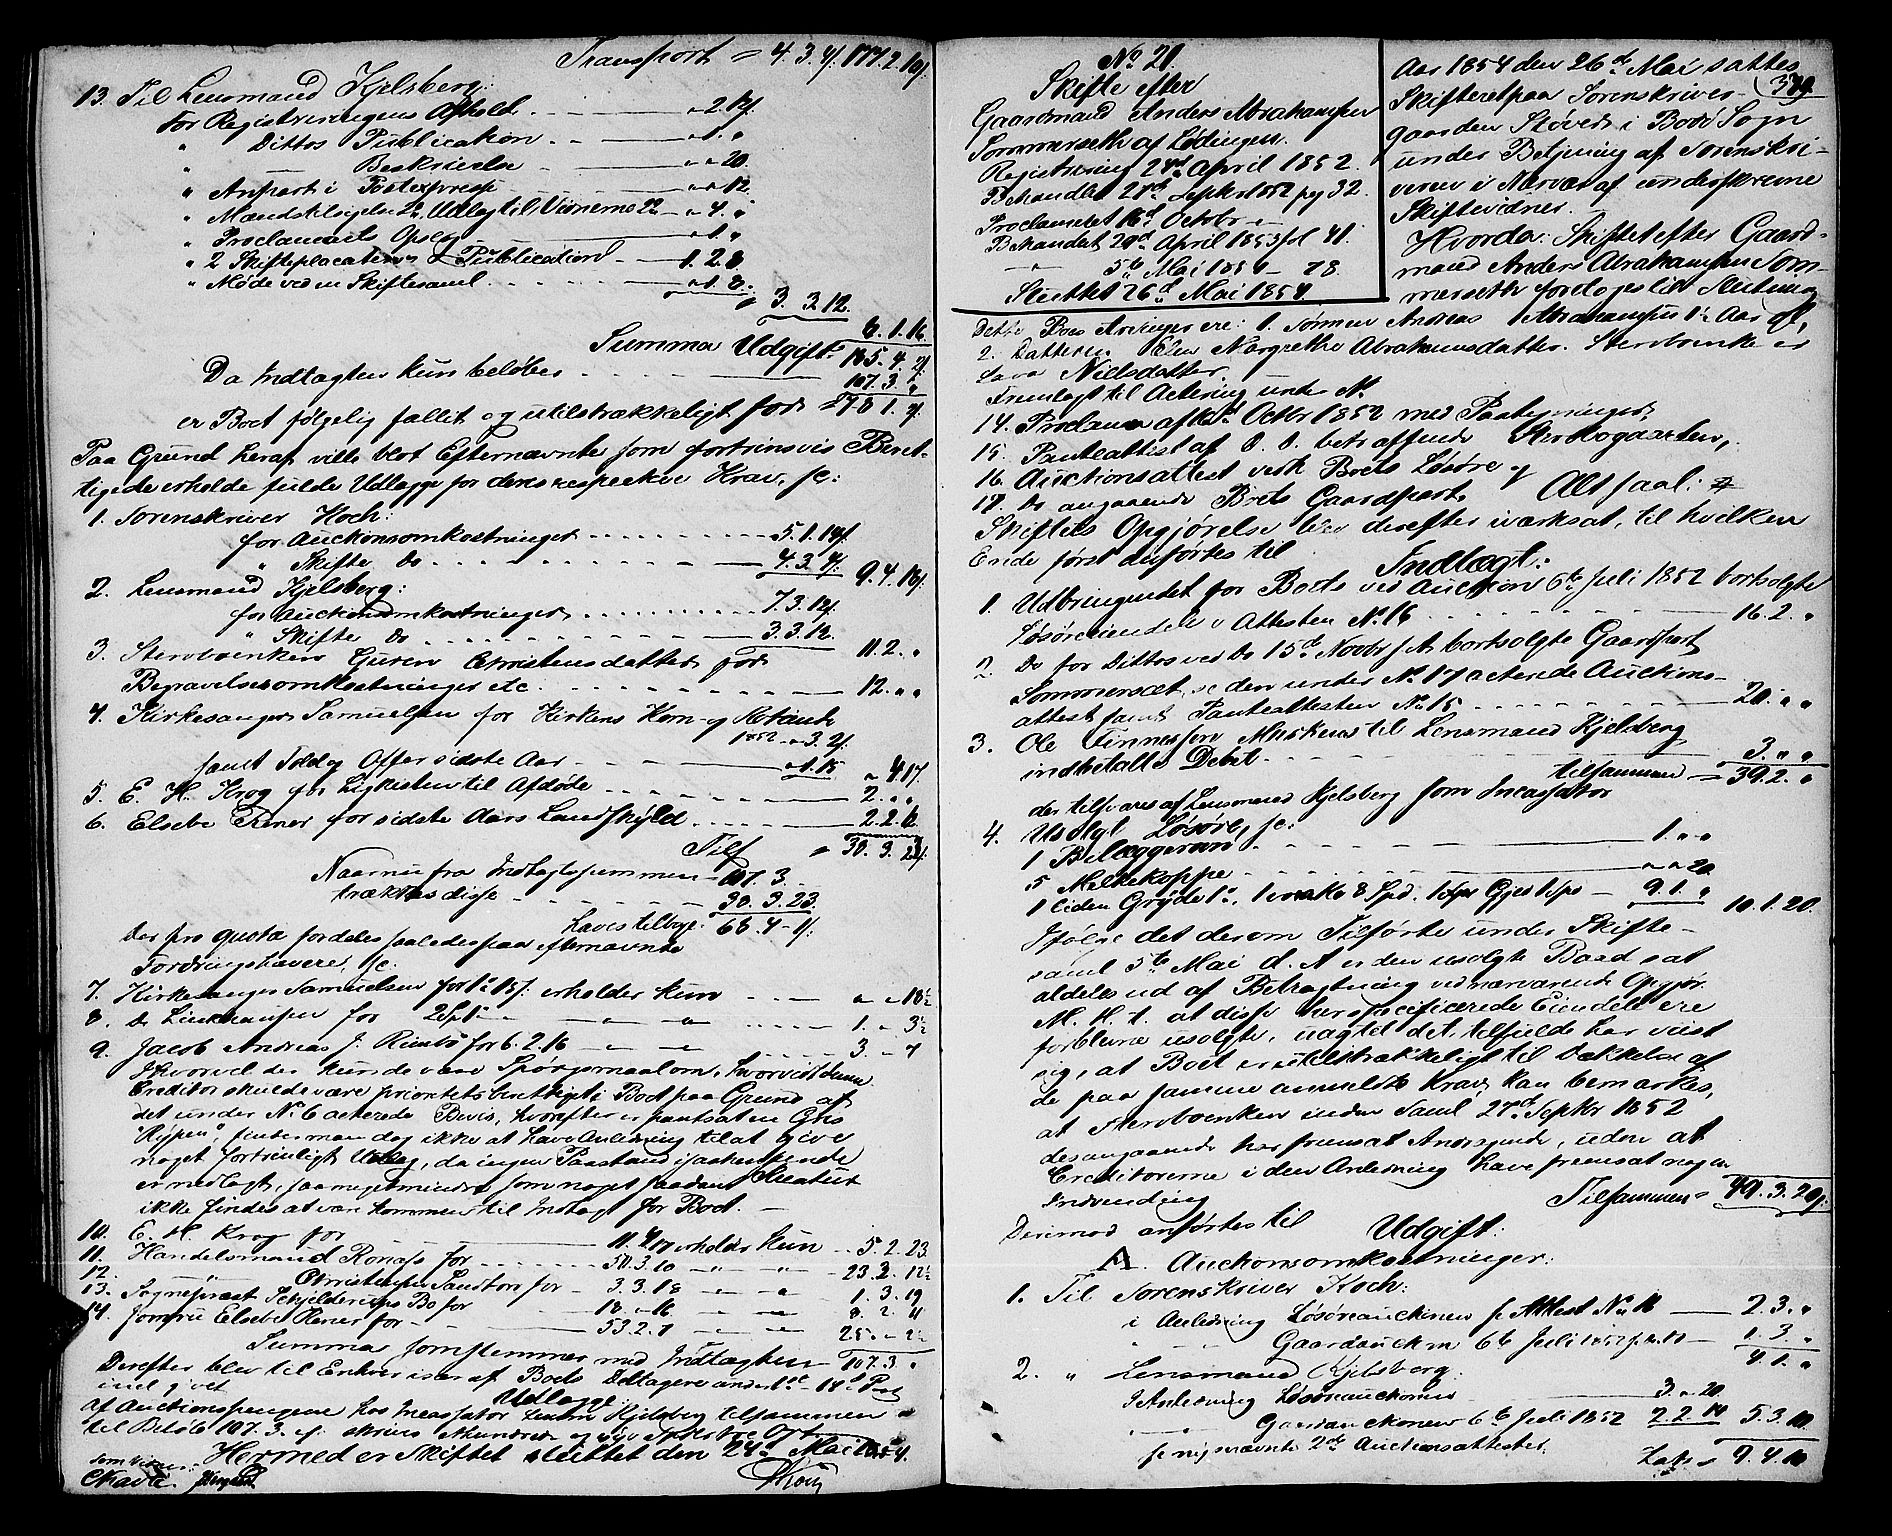 Transport = 4. 3. 4/.
13. Til Lensmand Kjelsberg:
For Registreringens Afhold
" Dittos Publication
" — Beskrivelse — 20.
" Anpart i Postexpresse — 12.
" Mændstilsigelse Udlæg til Vidnerne — 4.
" Proclamaets Opsl.
" 2 Skifteplacaters Publication — 1. 2. 8
" Møde ved en Skiftesaml. — 1. 8.
3. 3. 12.
6. 1. 16.
Summa Udgift
Da Indtægten kun beløber — 107. 3.
er Boet følgelig fallit og utilstrækkeligt for
Paa Grund heraf ville blot Efternævnte som fortrinsvis Beret-
tigede erholde fulde Udlægge for deres respective Krav, sc:
1. Sorenskriver Koch:
for Auctionsomkostninger
" Skifte Do — 4. 3. 4/.
2. Lensmand Kjelsberg:
for Auctionsomkostninger — 7. 3. 12/.
" Skifte Do — 3. 3. 12.
11. 2. "
3. Stervboenken Guren Christensdatter for
Begravelsesomkostninger etc. — 12. " "
4. Kirkesanger Samuelsen for Kirkens Korn- og
1852 — 3. 2/.
samt Told og Offer sidste Aar — 1. 15
5. E. H. Krog for Ligkisten til Afdøde — 2. " "
6. Elsebe for sidste Aars Landskyld — 2. 2.
Tils = 30. 3. 23/.
Naar nu fra Indtægtssummen — 107. 3.
trækkes disse — 30. 3. 23.
haves tilbage
Der pro quota fordeles saaledes paa efternævnte
Fordringshavere, sc.
7. Kirkesanger Samuelsen for erholder kun
8. Do for 2 Spd — 1. " 3½
9. Jacob Andreas J. for 6. 2. 16 — 3. " 4
Hvorvel der kunde være Spørgsmaal om, hvorvidt denne
Creditor skulde være prioritetsberettiget i Boet paa Grund af
det under No 6 acterede Bevis, hvorefter er pantsat en Gris
"Rypen", finder man dog ikke at have Anledning til at give
noget fortrinligt Udlæg, da ingen Paastand i saa henseende
er nedlagt, saameget mindre som noget saadant Creatur
ikke findes at være kommen til Indtægt for Boet. —
10. E. H. Krog for — erholder kun — 5. 2. 23
11. Handelsmand for — 50. 3. 10 — 23. 2. 12½
12. — Christensen for — 3. 3. 18 — 1. 3. 19
13. Sogneprest Schjelderups Bo for — 18. " 16 — 8. 2. 11
14. Jomfru Elsebe for — 53. 2. 7
Summa som stemmer med Indtægten — 107. 3. "
Derefter blev til Enhver især af Boets Deltagere under 1st – 14d Post
Udlægge
af Auctionspengene hos Incassator Lensm Kjelsberg tilsammen
til Beløb 107. 3.
Hermed er Skiftet sluttet den 24d Mai 1854.
som Vidner:
Koch
No 21.
Skifte efter
Gaardmand Anders Abrahamsen
Sommerseth af Lødingen.
Registrering 24d April 1852.
Behandlet 27d Septbr 1852 pag 32.
Proclameret 16d Octobr —
Behandlet 29d April 1853 fol 41.
— 5te Mai 1854 — 78.
Sluttet 26d Mai 1854.
Aar 1854 den 26d Mai sattes
Skifteret paa Sorenskriver-
379.
gaarden Støver i Bodø Sogn
under Betjening af Sorenskri-
veren i Nærvær af underskrevne
Skiftevidner.
Hvorda: Skiftet efter Gaard-
mand Anders Abrahamsen Som-
merseth foretoges til Slutning
Dette Boes Arvinger ere: 1. Sønnen Andreas Abrahamsen
2. Datteren Elen Margrethe Abrahamsdatter. Stervboenke er
Sara Nielsdatter.
Fremlagt til Actering under No
14. Proclama af Octbr 1852 med Paategninger,
15. Panteattest af D. D. betræffende Stervbogaarden,
16. Auctionsattest vedk Boets Løsøre og
17. Do angaaende Boets Gaardpart. Alt saal:
Skiftets Opgjørelse blev derefter iværksat, til hvilken
Ende først anførtes til Indtægt:
1. Udbringendet for Boets ved Auction 6te Juli 1852 bortsolgte
Løsøreeiendele Attesten No 16 — 16. 2. "
2. Do for Dittos ved Do 15d Novbr s. A. bortsolgte Gaardpart
Sommerset, se den under No 17 acterede Auctions-
attest samt Panteattesten No 15 — 20. " "
3. Ole Finnesen Musken til Lensmand Kjelsberg
indbetalte Debet — 3. " "
tilsammen = 39. 2. "
der tilsvares af Lensmand Kjelsberg som Incassator
4. Usolgt Løsøre, sc:
1 Bilæggerovn — 1. " "
5 Melkekopper — " " 20.
1 liden Gryde — 9. 1. "
10. 1. 20.
Ifølge det derom Tilførte under Skifte-
saml 5te Mai d. A. er den usolgte Baad sat
aldeles ud af Betragtning ved nærværende Opgjør.
M. H. t. at disse her specificerede Eiendele ere
forblevne usolgte, uagtet det tilfulde har viist
sig, at Boet er utilstrækkeligt til Dækkelse af
de paa samme anmeldte Krav, kan bemærkes,
at Stervboenken under Saml 27d Septbr 1852
desangaaende har fremsat Andragende, uden at
Creditorerne i den Anledning have fremsat nogen
Indvending
Tilsammen = 49. 3. 20/.
Derimod anførtes til Udgift:
A. Auctionsomkostninger:
1. Til Sorenskriver Koch:
i Anledning Løsøreauctionen f. Attest No 16 — 2. 3. "
" — Gaardauctn 6te Juli 1852 — 1. 3. "
4. 1. "
2. " Lensmand Kjelsberg:
i Anledning Løsøreauctionen — 3. " 20.
Gaardauctionen 6te Juli 1852 — 2. 2. 14
5. 3. 10
f. nysnævnte 2de Auctionsattester.
Lats = 9. 4. 10